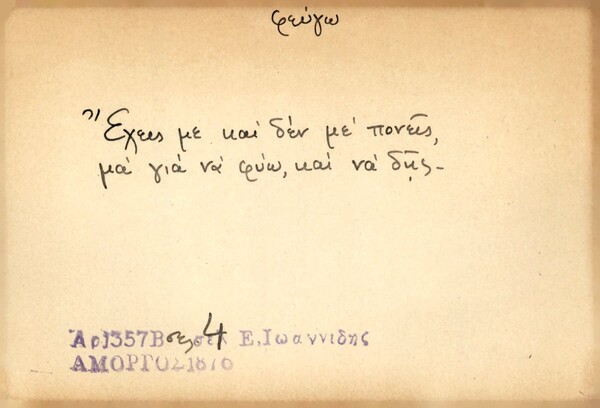 φεύγω
Ἔχεις με καί δέν με πονεῖς,
μά γιά νά φύω, καί νά δῇς.
Ἀρ)357Β σελ 4 Ε.Ιωαννιδης
ΑΜΟΡΓΟΣ 1876